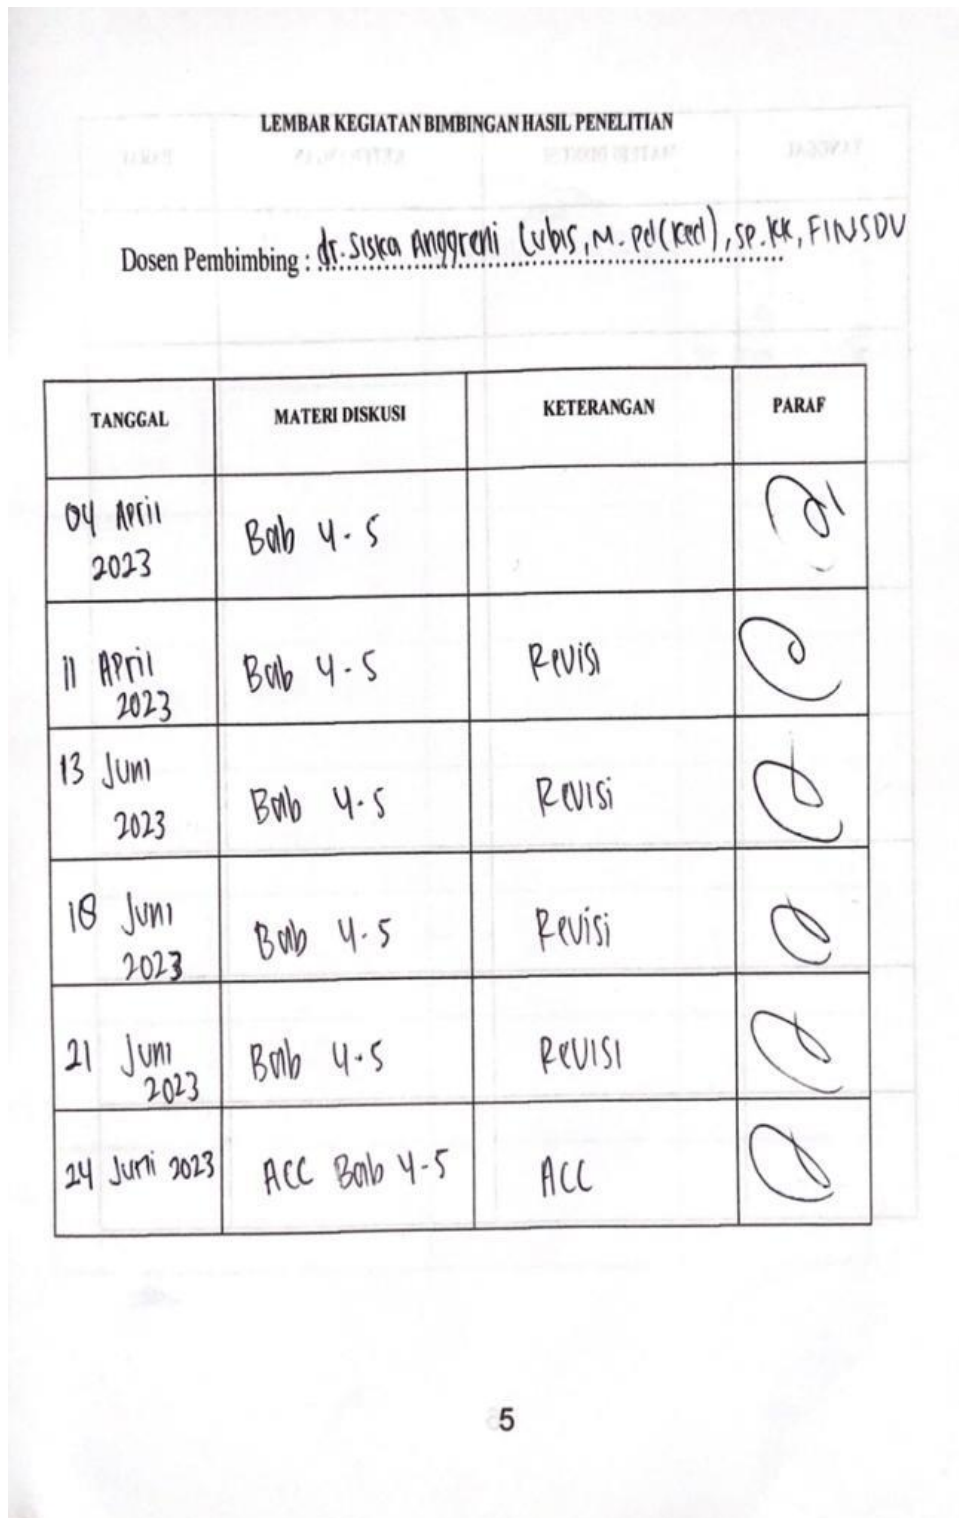 LEMBAR KEGIATAN BIMBINGAN HASIL PENELITIAN
Dosen Pembimbing : dr. Siska Anggreni Lubis, M. Pd(Ked), Sp. KK, FINSDV
TANGGAL MATERI DISKUSI KETERANGAN PARAF
04 April 2023 Bab 4-5
11 April 2023 Bab 4-5 Revisi
13 Juni 2023 Bab 4-5 Revisi
18 Juni 2023 Bab 4-5 Revisi
21 Juni 2023 Bab 4-5 Revisi
24 Juni 2023 ACC Bab 4-5 ACC
5